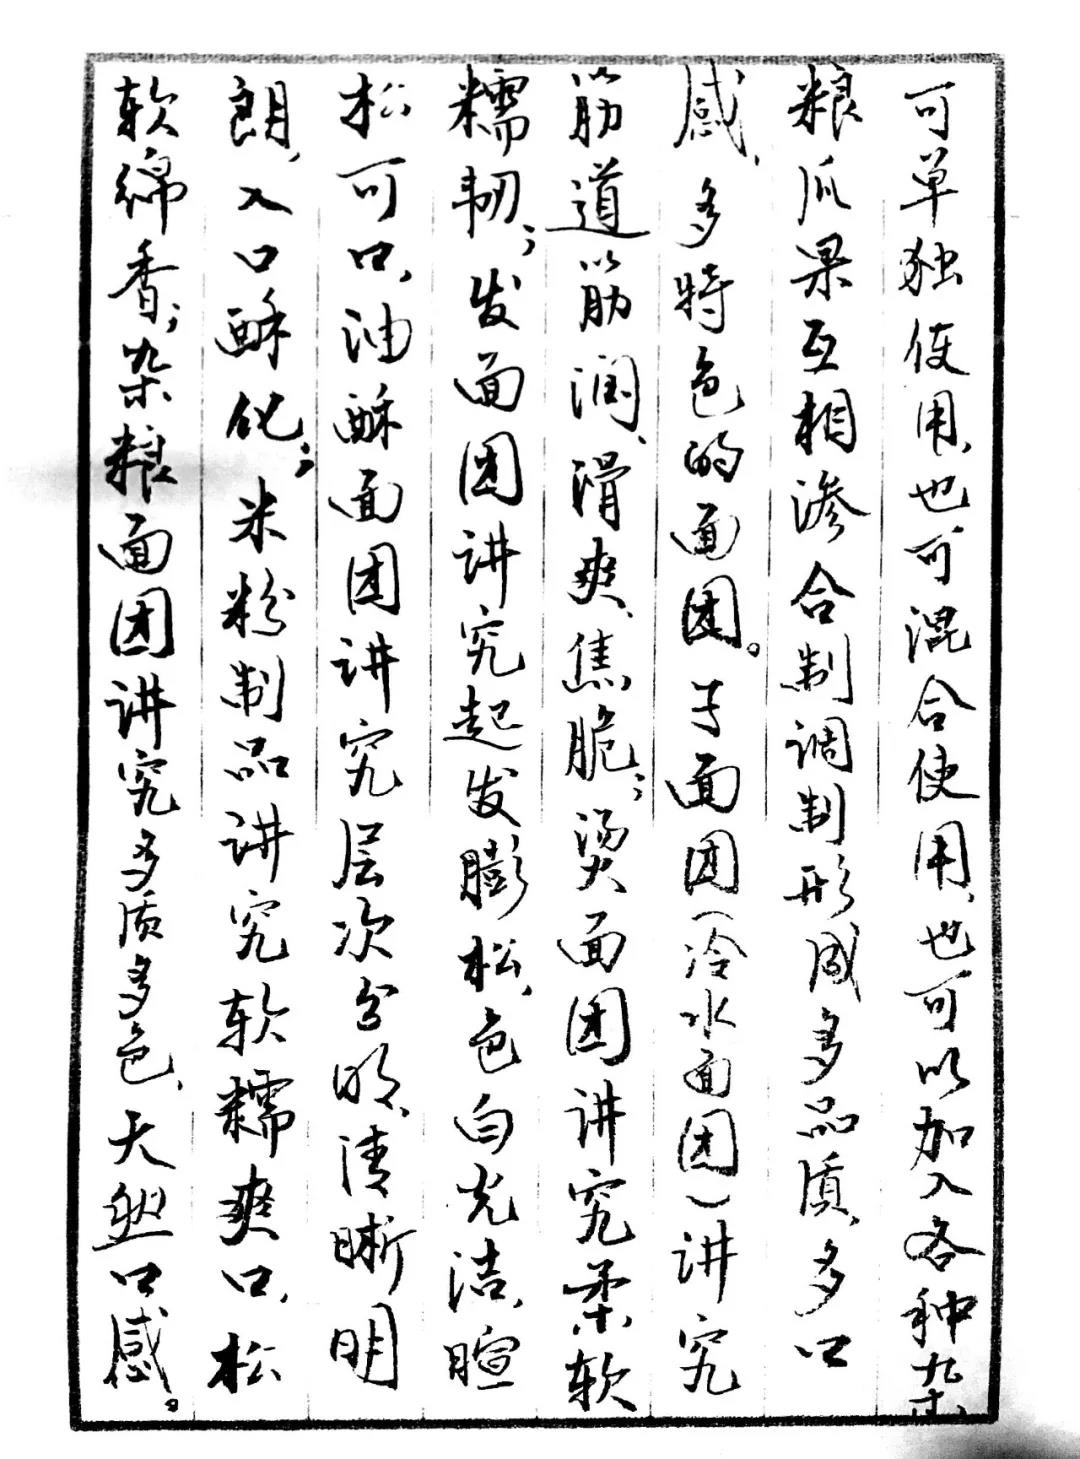 可单独使用,也可混合使用,也可以加入各种杂
粮瓜果互相渗合制调制形成多品质,多口
感、多特色的面团。子面团(冷水面团)讲究
筋道筋润、滑爽、焦脆;烫面团讲究柔软
糯韧;发面团讲究起发膨松,色白光洁,暄
松可口,油酥面团讲究层次分明,清晰明
朗,入口酥化;米粉制品讲究软糯爽口,松
软绵香;杂粮面团讲究多质多色,天然口感。